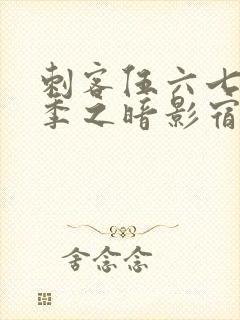 刺客伍六七
季之暗影宿
舍念念